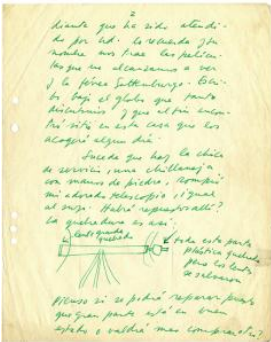 2
diante que ha sido atendi-
do por Ud. lo recuerda y su
nombre nos trae las pelícu-
las que no alcanzamos a ver
y la férea Escri-
to bajo el globo que tanto
discutimos y que al fin encon-
tró sitio en esta casa que los
acogerá algun día.
Sucede que hoy la chica
de servicio, una chillaneja
con manos de piedra, rompió
mi adorado telescopio, igual
al suyo. Habrá repuestos allí?
La quebradura es así:
lente quedó
quebrado
toda esta parte
plástica quebrada
pero los lentes
se salvaron
Pienso si se podrá reparar, puesto
que gran parte está en buen
estado o valdrá mas comprar otro?